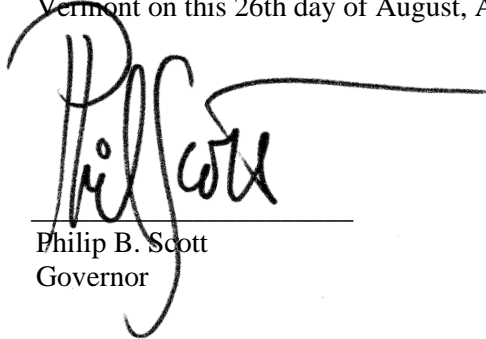 Vermont on this 26th day of August, A
Phil Scott
Philip B. Scott
Governor